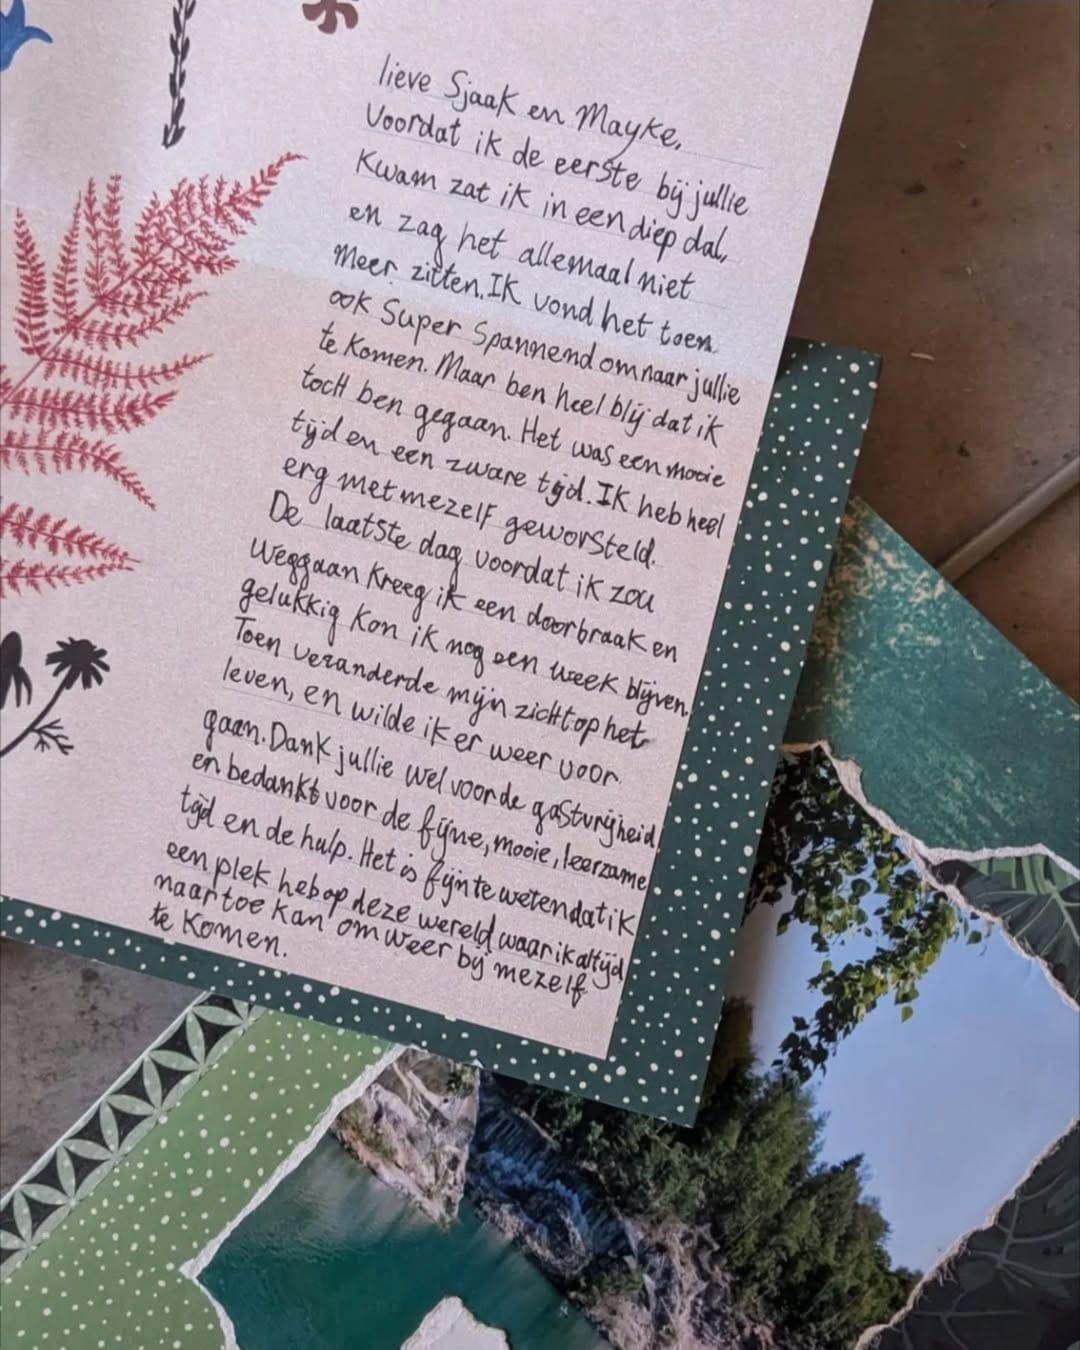 lieve Sjaak en Mayke,
Voordat ik de eerste bij jullie
Kwam zat ik in een diep dal,
en zag het allemaal niet
meer zitten. Ik vond het toen
ook Super Spannend om naar jullie
te Komen. Maar ben heel blij dat ik
toch ben gegaan. Het was een mooie
tijd en een zware tijd. Ik heb heel
erg met mezelf geworsteld.
De laatste dag voordat ik zou
Weggaan Kreeg ik een doorbraak en
gelukkig Kon ik nog een week blijven.
Toen veranderde mijn zicht op het
leven, en wilde ik er weer voor
gaan. Dank jullie wel voor de gastvrijheid
en bedankt voor de fijne, mooie, leerzame
tijd en de hulp. Het is fijn te weten dat ik
een plek heb op deze wereld waar ik altijd
naar toe kan om weer bij mezelf
te Komen.